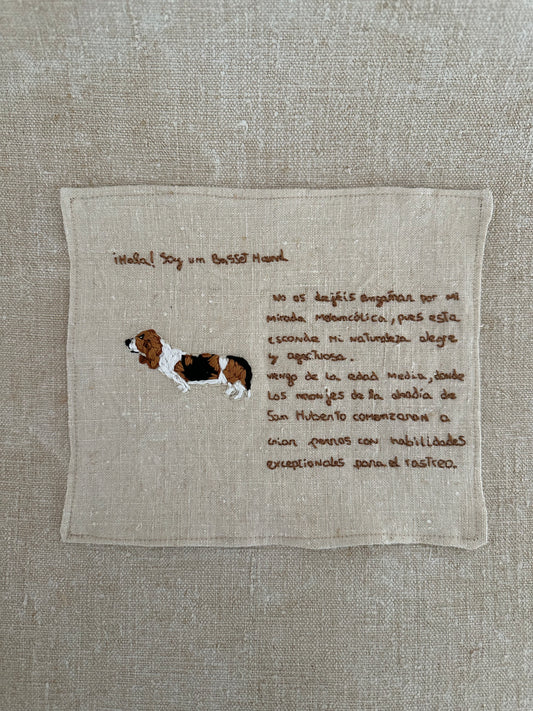 ¡Hola! Soy un Basset Hound
No os dejéis engañar por mi
mirada melancólica, pues esta
esconde mi naturaleza alegre
y afectuosa.
vengo de la edad media, donde
los monjes de la abadía de
San Huberto comenzaron a
criar perros con habilidades
exceptionales para el rastreo.